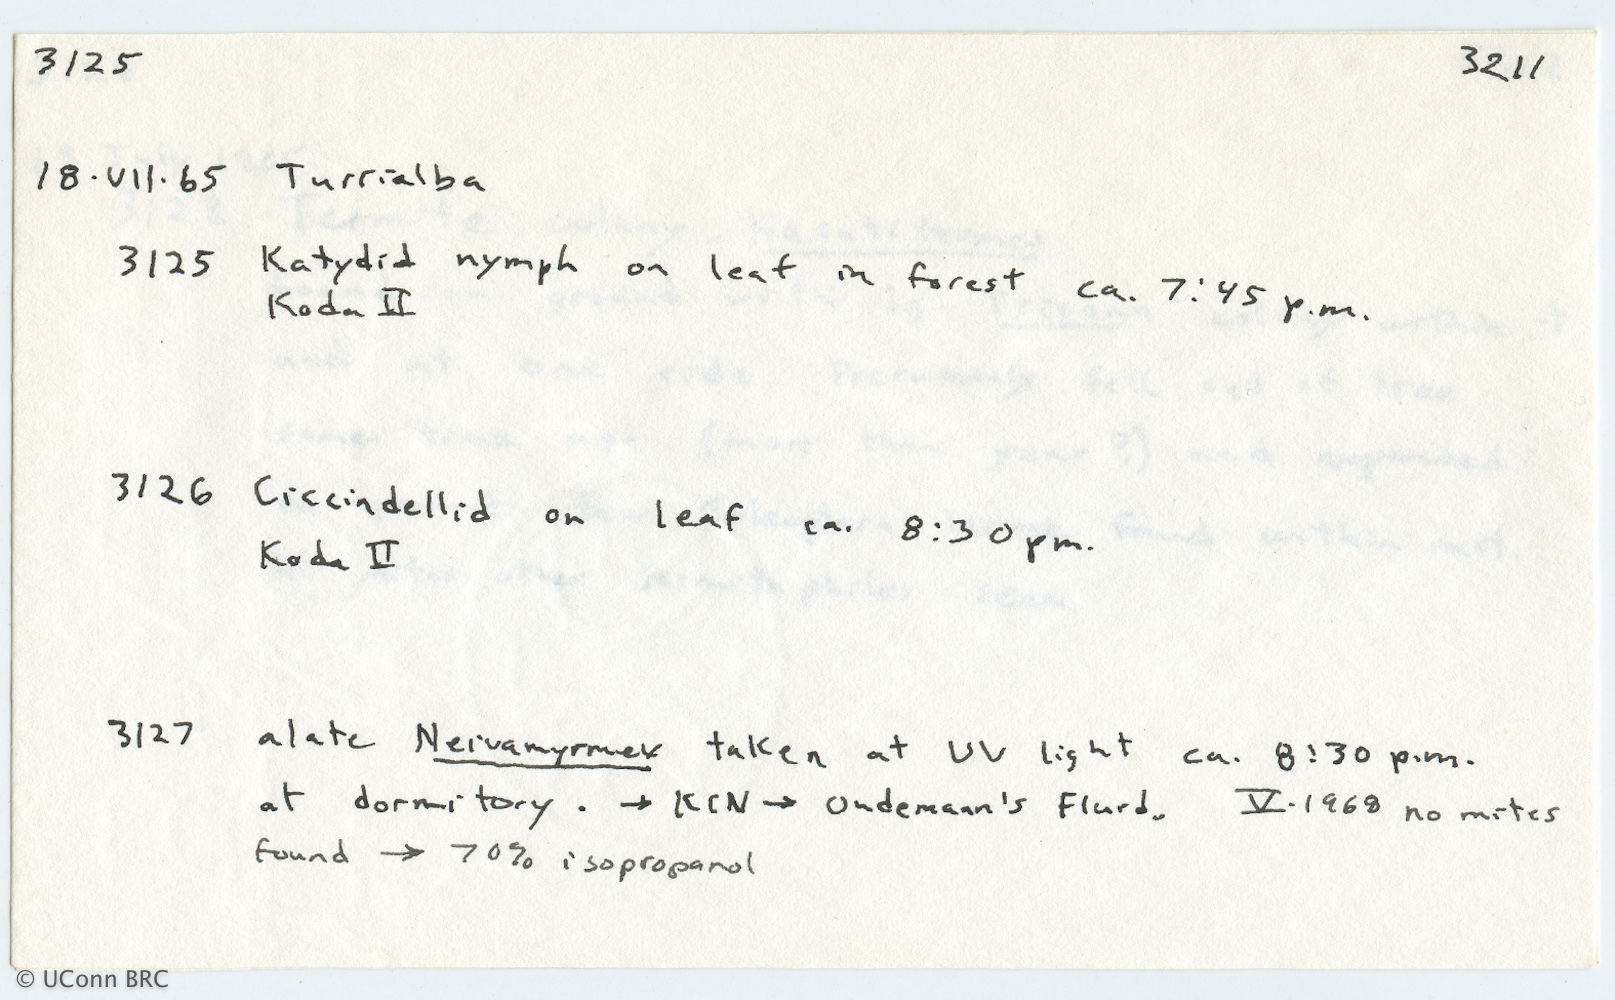 3125 3211
18.VII.65 Turrialba
3125 Katydid nymph on leaf in forest ca. 7:45 p.m.
Koda II
3126 Ciccindellid on leaf ca. 8:30 pm.
Koda II
3127 alate Neivamyrmex taken at UV light ca. 8:30 p.m.
at dormitory. → KCN → Oudemann's Fluid. V.1968 no mites
found → 70% isopropanol
© UConn BRC